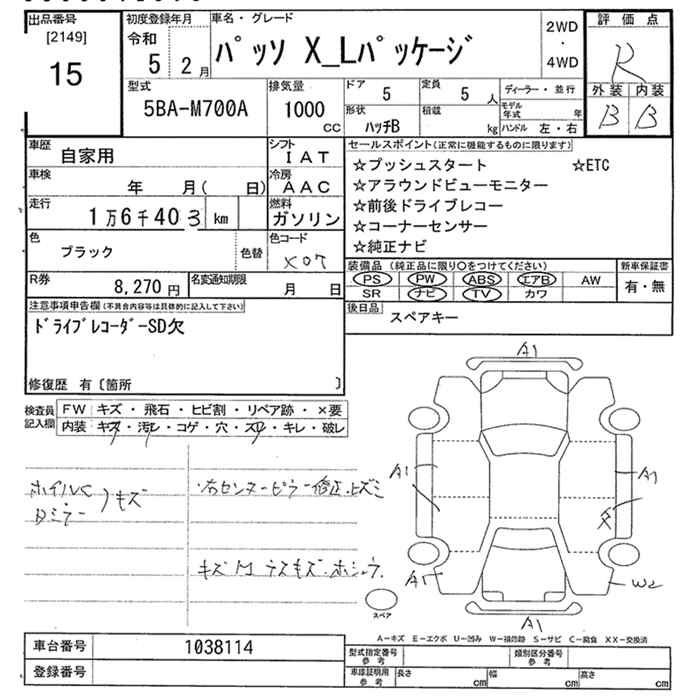 出品番号
[2149]
15
初度登録年月
令和
5 2月
車名・グレード
パッソ X_Lパッケージ
2WD
・
4WD
評価点
R
外装 内装
B B
型式
5BA-M700A
排気量
1000
CC
ドア
5
定員
5 人
ディーラー・並行
モデル年式 年
形状
ハッチB
積載
kg
ハンドル 左・右
車歴
自家用
シフト
IAT
セールスポイント(正常に機能するものに限ります)
☆プッシュスタート ☆ETC
☆アラウンドビューモニター
☆前後ドライブレコー
☆コーナーセンサー
☆純正ナビ
車検
年 月( 日)
冷房
AAC
走行
1万6千403 km
燃料
ガソリン
色
ブラック
色替
色コード
X07
装備品(純正品に限り○をつけてください)
PS PW ABS エアB AW
SR ナビ TV カワ
新車保証書
有・無
R券
8,270円
名変通知期限
月 日
後日品
スペアキー
注意事項申告欄(不具合内容等は具体的に記入して下さい)
ドライブレコーダーSD欠
修復歴 有〔箇所 〕
検査員
記入欄
FW キズ・飛石・ヒビ割・リペア跡・×要
内装 キズ・汚レ・コゲ・穴・スレ・キレ・破レ
ホイルC
Dミラー
)キズ
・右センターピラー修正、ヒズミ
キズ M
A1
A1
A1
A1
W2
A1
スペア
A-キズ E-エクボ U-凹み W-補修跡 S-サビ C-腐食 XX-交換済
車台番号
1038114
登録番号
型式指定番号
参考
類別区分番号
参考
車庫証明用
参考
長さ cm
幅 cm
高さ cm